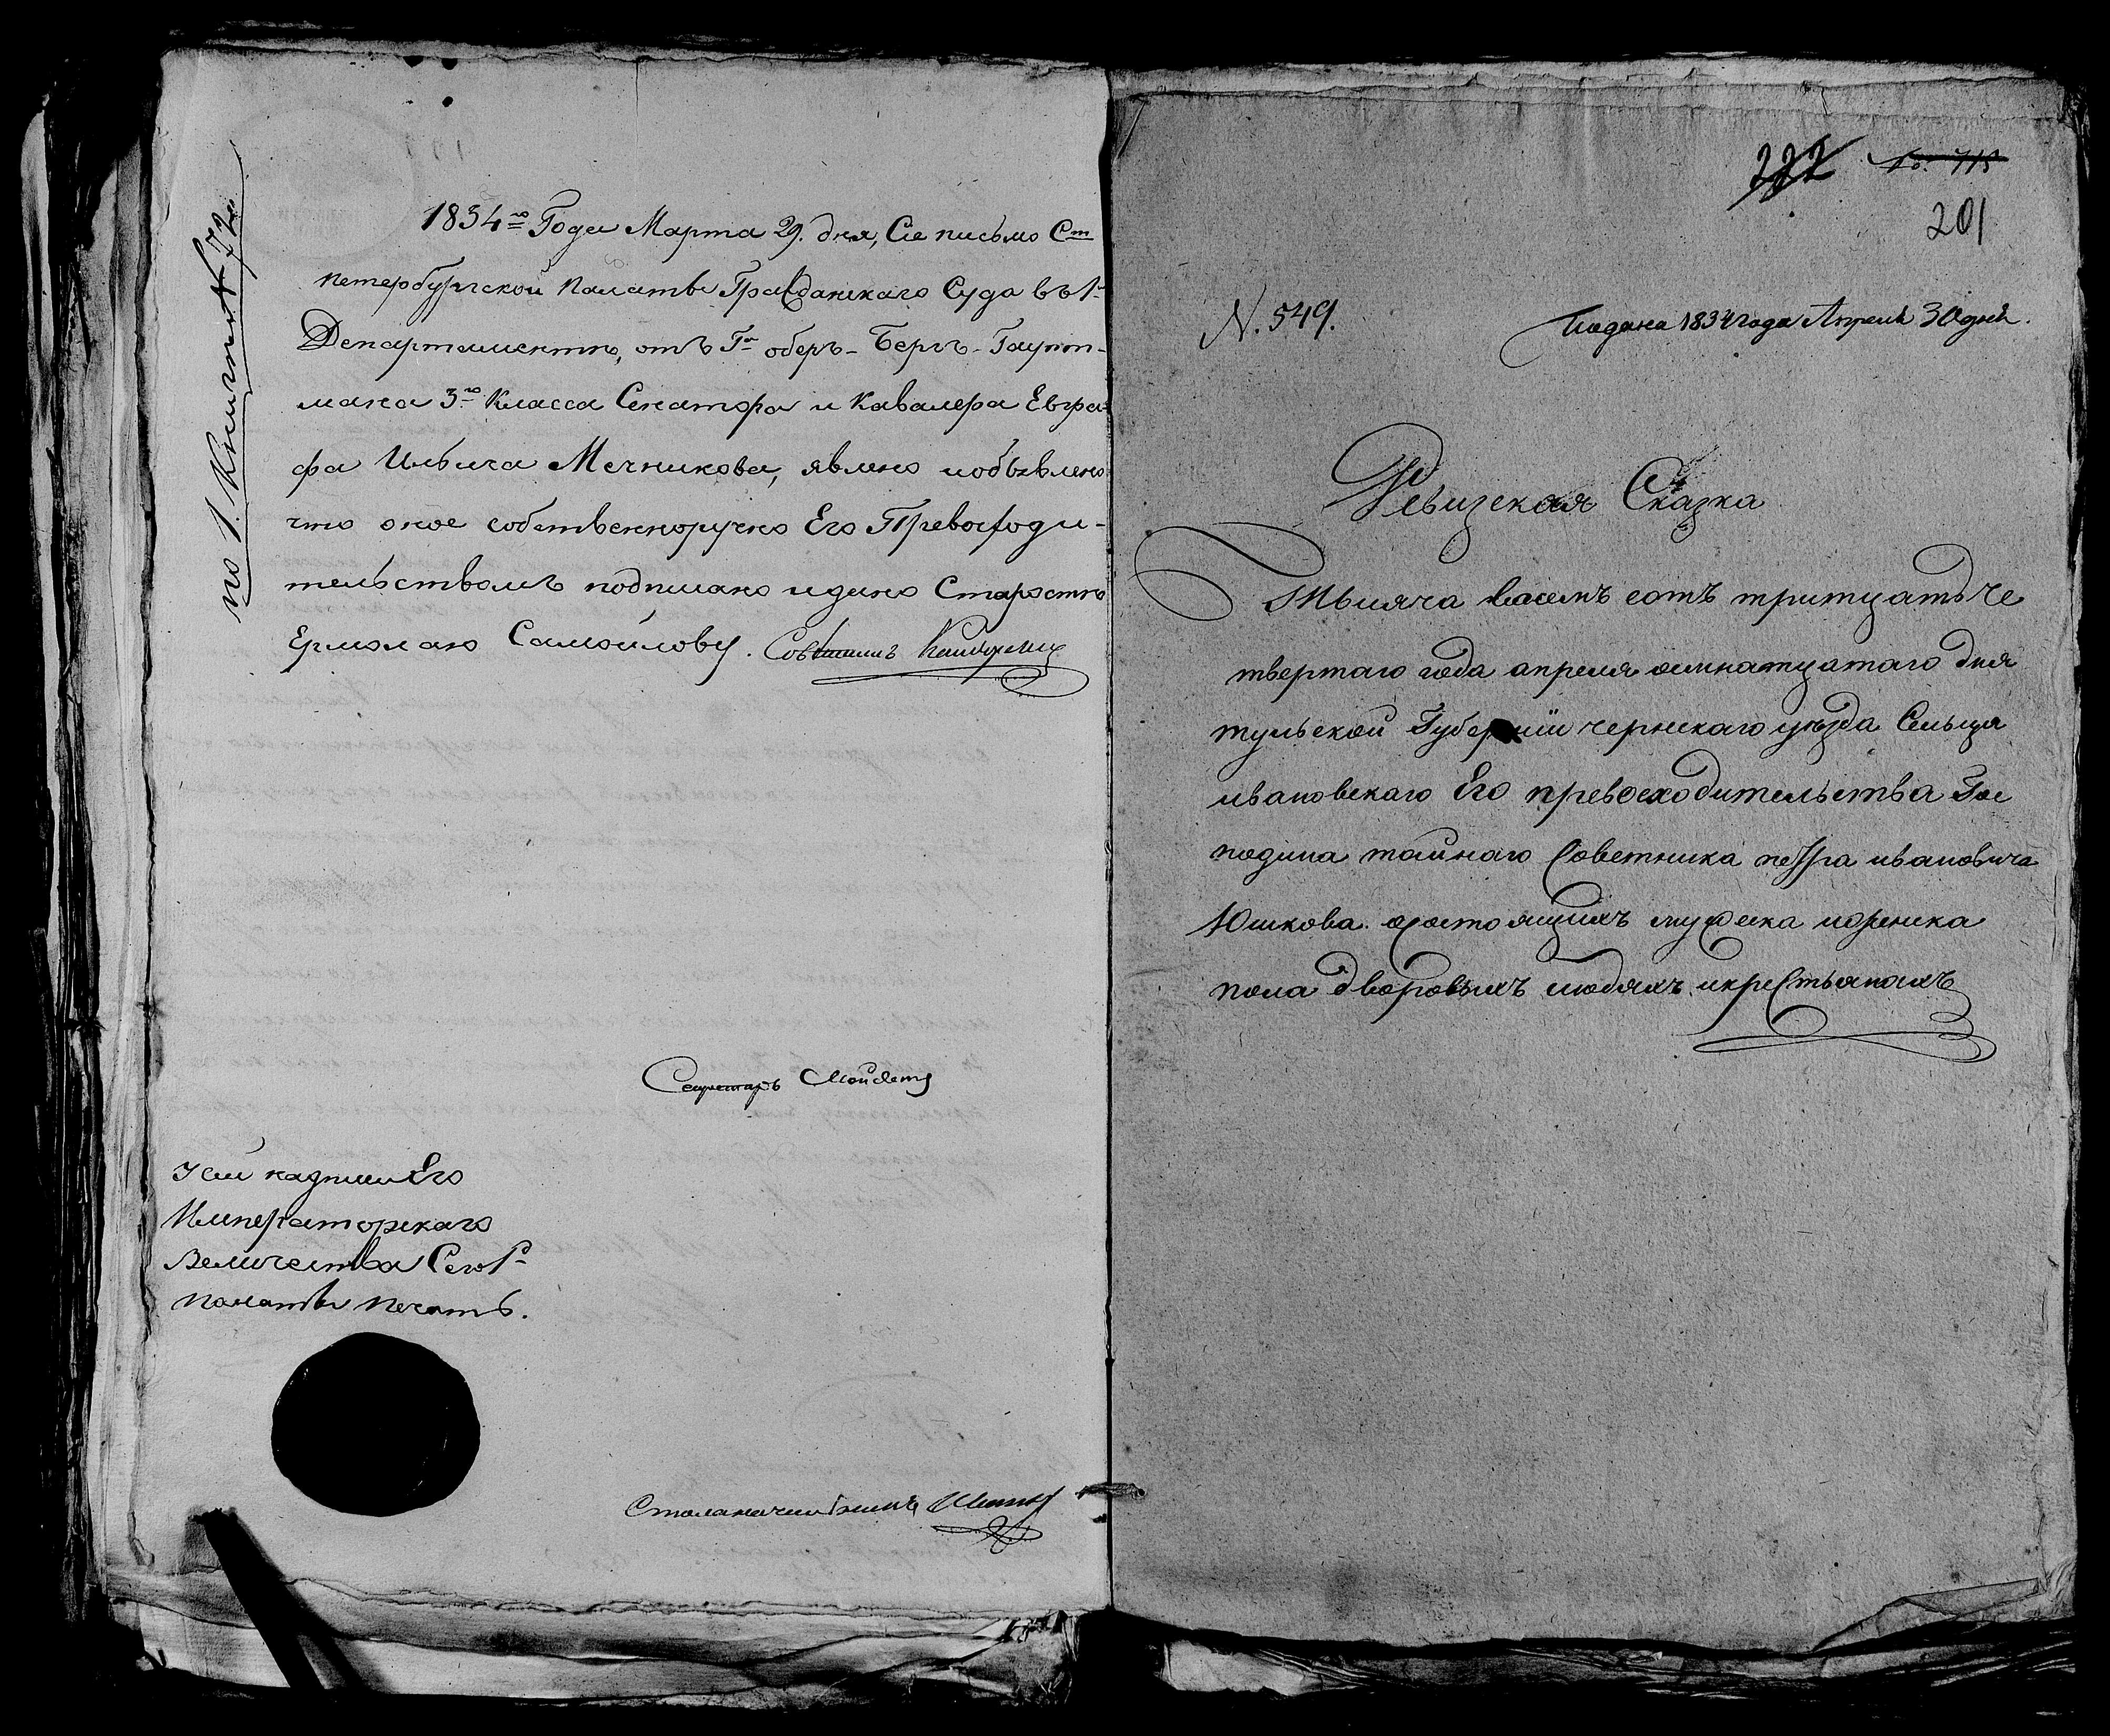 по 1. Книги № 72.
1834го Года Марта 29. дня, Сіе письмо Ст
петербургской Палаты Гражданскаго Суда въ 1м
Департаментѣ, отъ Гна оберъ-Бергъ-Гаупт-
мана 3го Класса Сенатора и Кавалера Евгра-
фа Ильича Мечникова, явлено и объявлено
что оное собственноручно Его Превосходи-
тельствомъ подписано и дано Старостѣ
Ермолаю Самойлову.
Секретарь
У сей надписи Его
Императорскаго
Величества Сей
Палаты Печать.
Столоначальникъ
222 No. 715
201
N. 549.
Подана 1834 года Апреля 30 дня.
Ревизская Сказка
Тысяча восемъ сотъ тритцать че
твертаго года апреля осмнатцатаго дня
тульской Губерніи чернскаго уѣзда Сельца
ивановскаго Его превосходительства Гос
подина тайнаго Советника петра ивановича
Юшкова. осостоящихъ мужеска иженска
пола дворовыхъ людяхъ икрестьянахъ